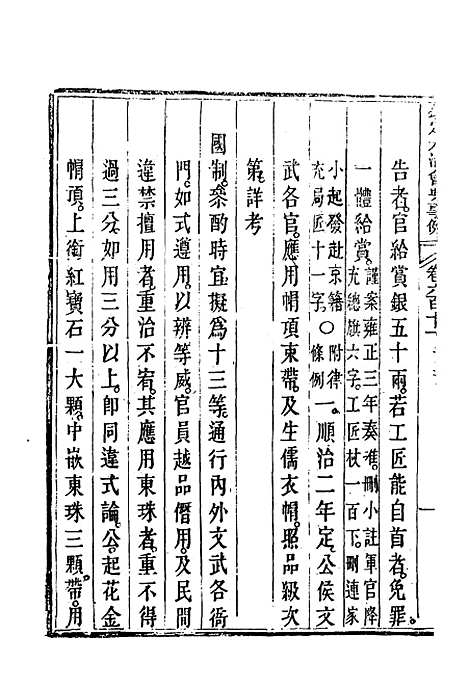 告者官給賞銀五十兩若工匠能自首者免罪
一體給賞謹案雍正三年奏准刪小註軍官降
充總旗六字工匠杖一百下刪連家
小起發赴京籍
充局匠十一字○附律
條例一順治二年定公侯文
武各官應用帽頂束帶及生儒衣帽照品級次
第詳考
國制參酌時宜擬為十三等通行內外文武各衙
門如式遵用以辨等威官員越品僭用及民間
違禁擅用者重治不宥其應用東珠者重不得
過三分如用三分以上即同違式論公起花金
帽頂上銜紅寶石一大顆中嵌東珠三顆帶用